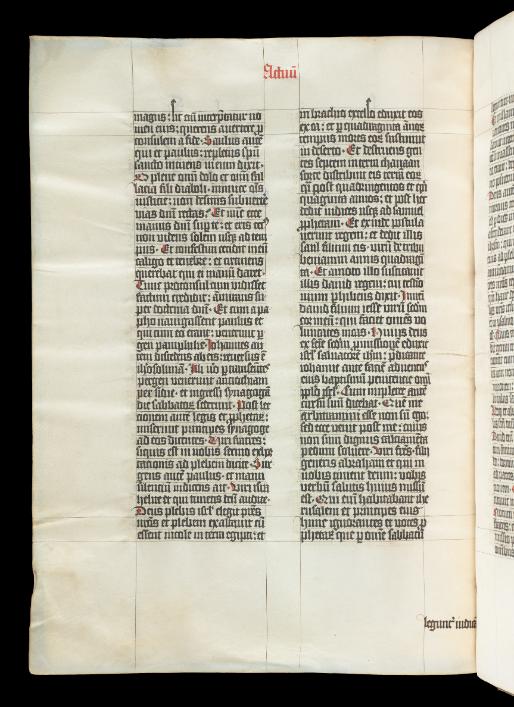 Actuū
magus: sic eni interpretatur no
men eius: querens auertere p
consulem a fide. Saulus autē
qui et paulus: repletus spū
sancto intuens in eum dixit.
O plene omi dolo et omi fal
lacia fili diaboli: inimice ois
iusticie: non desinis subuertē
vias dnī rectas. Et nūc ecce
manus dnī sup te: et eris cec9
non videns solem usqȝ ad tem
pus. Et confestim cecidit in eū
caligo et tenebre: et circuiens
querebat qui ei manū daret.
Tunc proconsul cum vidisset
factum credidit: admirans su
per doctrina dnī. Et cum a pa
pho nauigassent paulus et
qui cum eo erant: venerunt p
gen pamphilie. Johannes au
tem discedens ab eis: reuersus ē
iherosolimā. Illi vo ptranseūtes
pergen venerunt antiochiam
persidie: et ingressi synagogā
die sabbatorū sederunt. Post lec
cionem autē legis et pphetarū:
miserunt principes synagoge
ad eos dicentes. Viri fratres:
si quis est in vobis sermo exhor
tationis ad plebem dicite. Sur
gens autē paulus: et manu
silentiū indicens ait. Viri isra
helite et qui timetis deū audite.
Deus plebis isrl elegit patres
nr̄os et plebem exaltauit cū
essent incole in terra egipti: et
in brachio excelso eduxit eos
ex ea: et p quadraginta annoȝ
tempus mores eoȝ sustinuit
in deserto. Et destruens gen
tes septem in terra chanaan
sorte distribuit eis terrā eoȝ
qȝ post quadringentos et qn
quaginta annos: et post hec
dedit iudices usqȝ ad samuel
pphetam. Et exinde postula
uerunt regem: et dedit illis
saul filium cis: virū de tribu
beniamin annis quadragin
ta. Et amoto illo suscitauit
illis dauid regem: cui testio
nium phibens dixit. Inueni
dauid filium iesse: virū secm
cor meū: qui faciet omnes vo
luntates meas. Huius deus
ex semine secm pmissionē eduxit
isrl saluatorē ihm: pdicante
iohanne ante faciē aduentus
eius baptismū penitentie omi
pplo isrl. Cum impleret autē
cursū suū dicebat. Quē me
arbitramini esse non sū ego:
sed ecce venit post me: cuius
non sum dignus calciamēta
pedum soluere. Viri frēs: filii
generis abraham et qui in
vobis timent deum: vobis
verbū salutis huius missū
est. Qui enī habitabant ihe
rusalem et principes eius
hunc ignorantes et voces p
phetarū que p omne sabbatū
legunt iudic